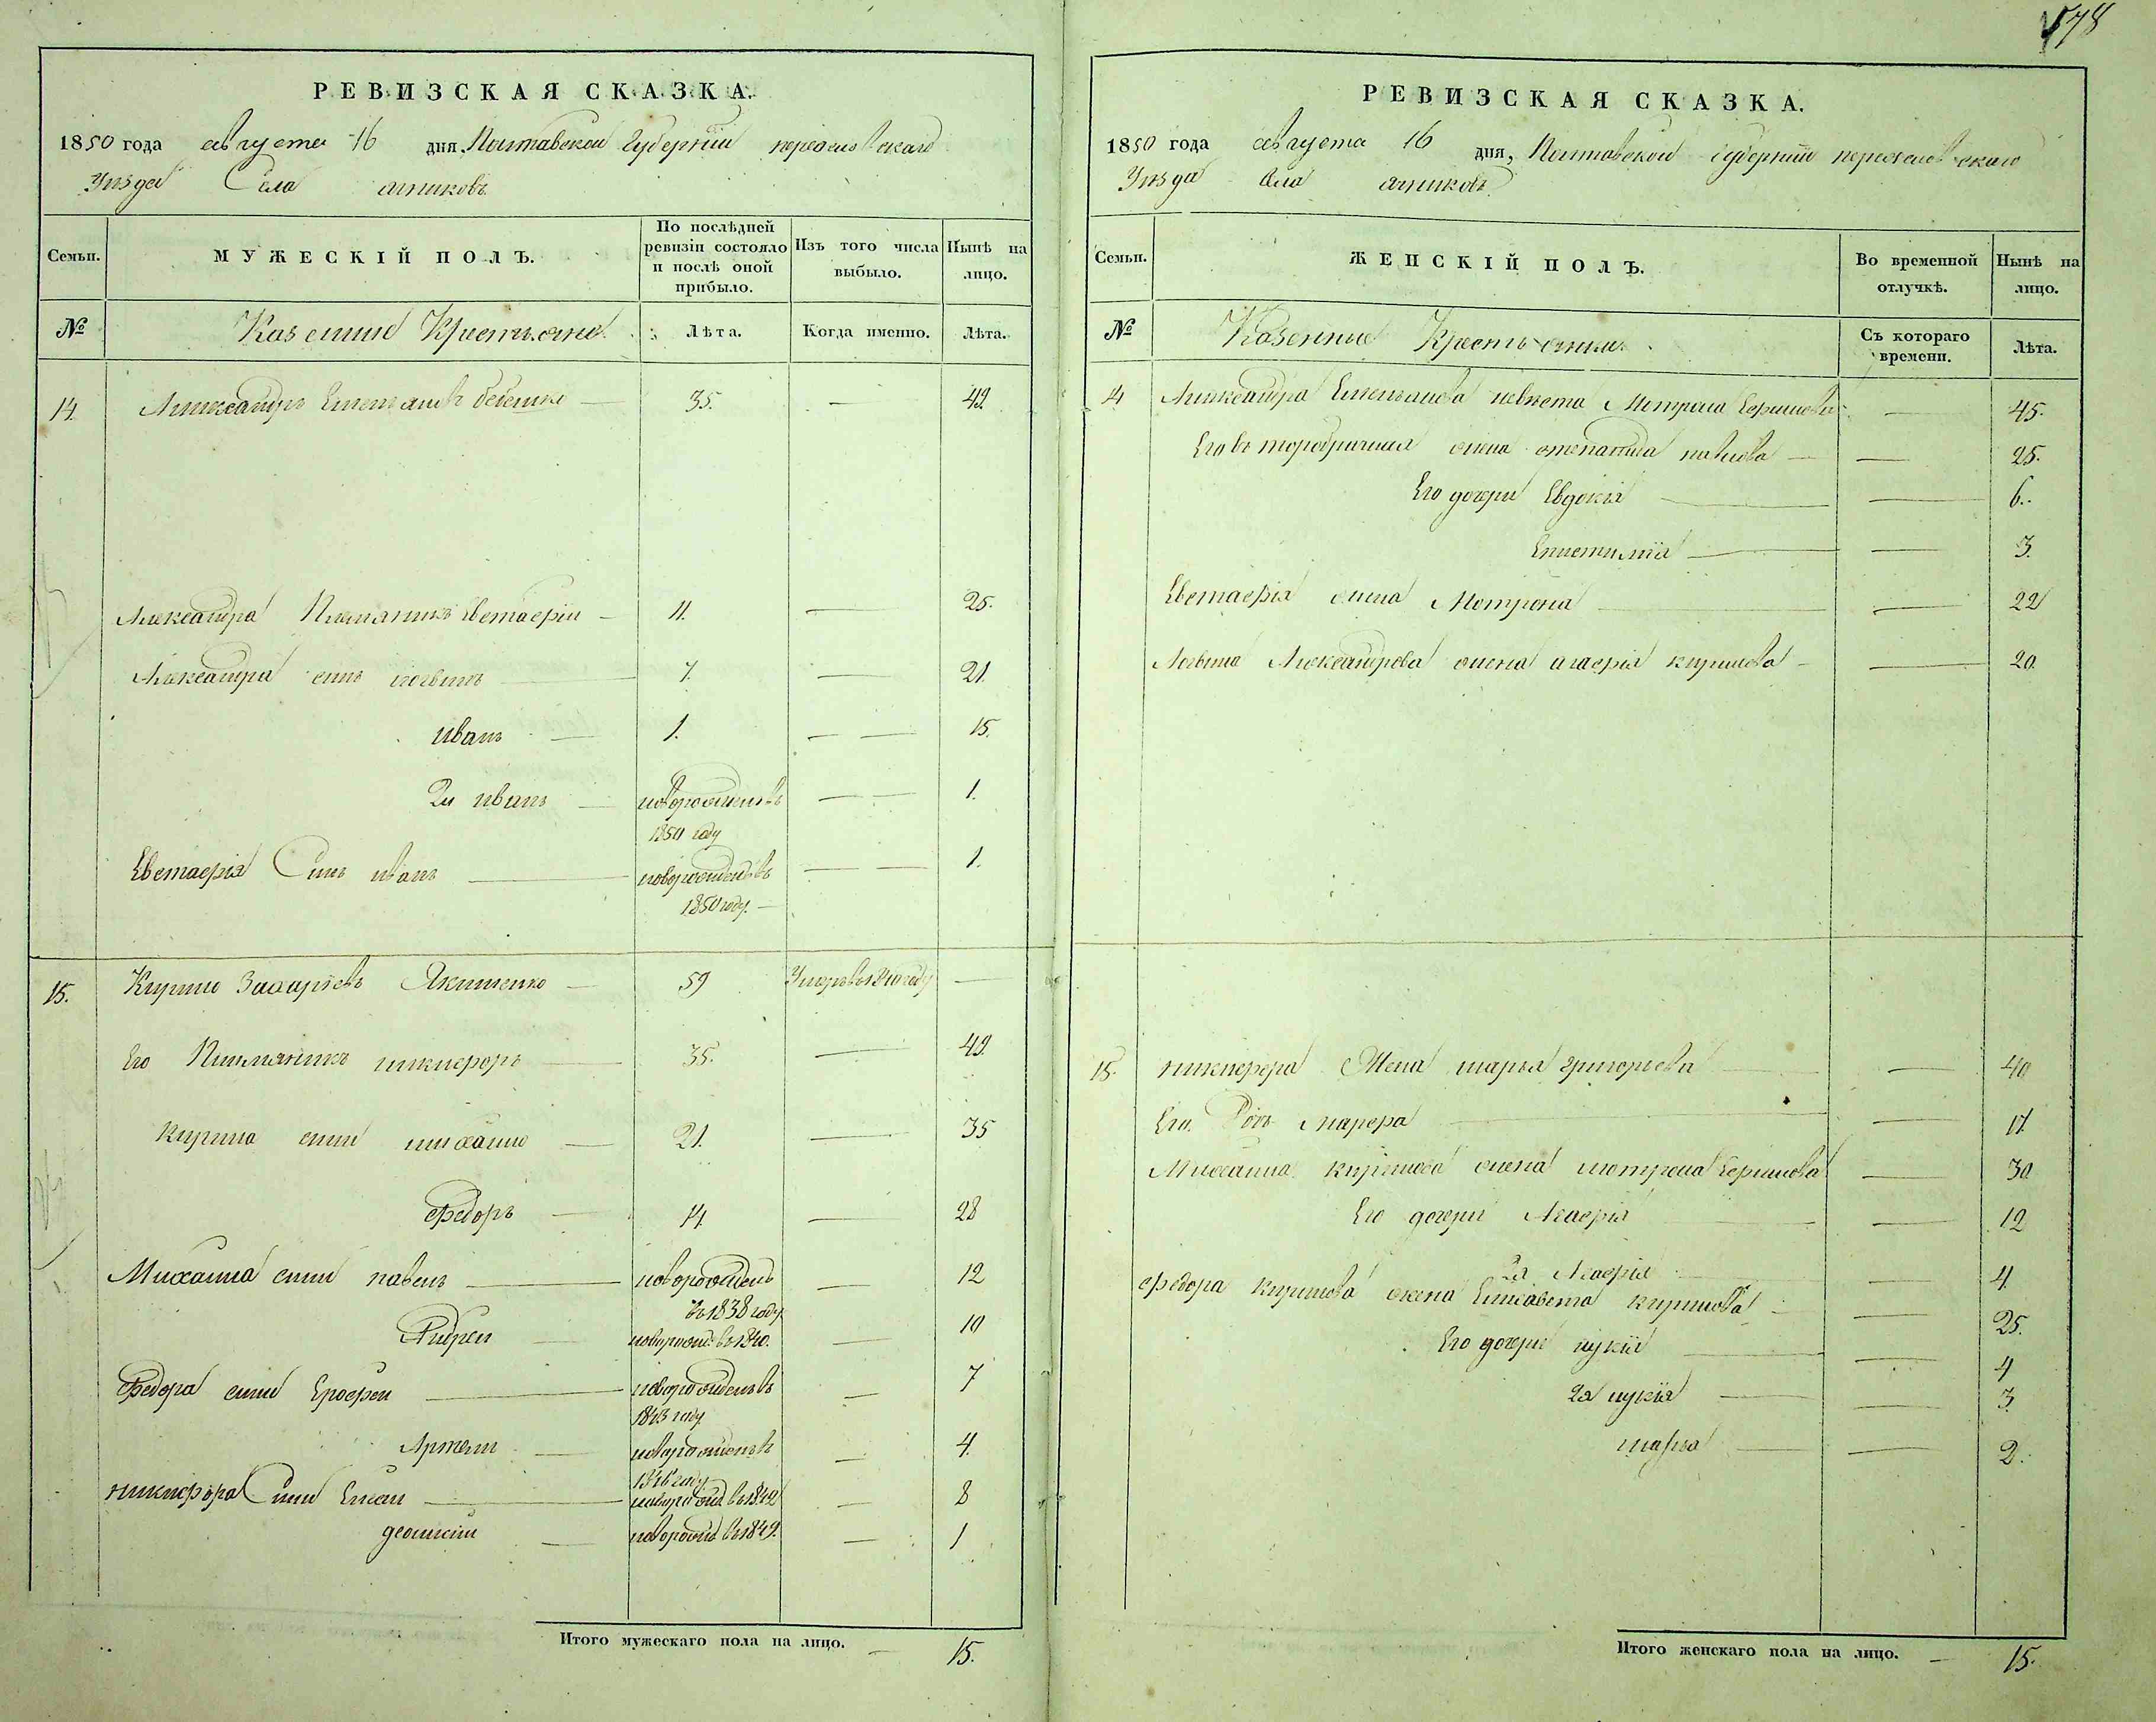 578
РЕВИЗСКАЯ СКАЗКА.
1850 года августа 16 дня, Полтавской Губерніи переяславскаго
Уѣзда Села
Семьи.
МУЖЕСКІЙ ПОЛЪ.
По послѣдней ревизіи состояло и послѣ оной прибыло.
Изъ того числа выбыло.
Нынѣ на лицо.
№
Казенние Крестьяне
Лѣта.
Когда именно.
Лѣта.
14. Александръ Емельяновъ — 35. — 49.
Александра Племяникъ Евстаѳіи — 11. — 25.
Александра синъ логвинъ — 7. — 21.
иванъ — 1. — 15.
2й иванъ — новорожденъ въ — 1.
1850 году
Евстаѳія Синъ иванъ — новорожденъ въ — 1.
1850 году. —
15. Кирило Захаріевъ Якименко — 59 Умеръ въ 1840 году —
Его Племяникъ никифоръ — 35. — 49.
Кирила сини михаило — 21. — 35
Федоръ — 14 — 28
Михаила сини павелъ — новорожденъ — 12
въ 1838 году
Андреи — новорожд: въ 1840. — 10
Федора сини Ерофеи — новорожденъ въ — 7
1843 году
Артемъ — новорожденъ въ — 4.
1846 году
никифора Сини — новорожд въ 1842 — 8
— новорожд въ 1849. — 1
Итого мужескаго пола на лицо. — 15.
РЕВИЗСКАЯ СКАЗКА.
1850 года августа 16 дня, Полтавской губерніи переяславскаго
Уѣзда Села
Семьи.
ЖЕНСКІЙ ПОЛЪ.
Во временной отлучкѣ.
Нынѣ на лицо.
№
Казенные Крестьянки.
Съ котораго времени.
Лѣта.
14 Александра Емельянова невѣста Мотрона — 45.
Его второбрачная жена степанида павлова — — 25.
Его дочери Евдокія — — 6.
Епистимія — — 3.
Евстаѳія жена Мотрона — — 22
Логвина Александрова жена агаѳія кирилова — — 20.
15. никифора Жена марья григорьева — 40
Его Дочь марфа — 17.
Михаила кирилова жена мотрона — 30
Его дочери Агаѳія — 12
2я Агаѳія — 4
Федора Кирилова жена Елисавета кирилова — — 25.
Его дочери лукія — — 4
2я лукія — — 3.
марья — — 2.
Итого женскаго пола на лицо. — 15.